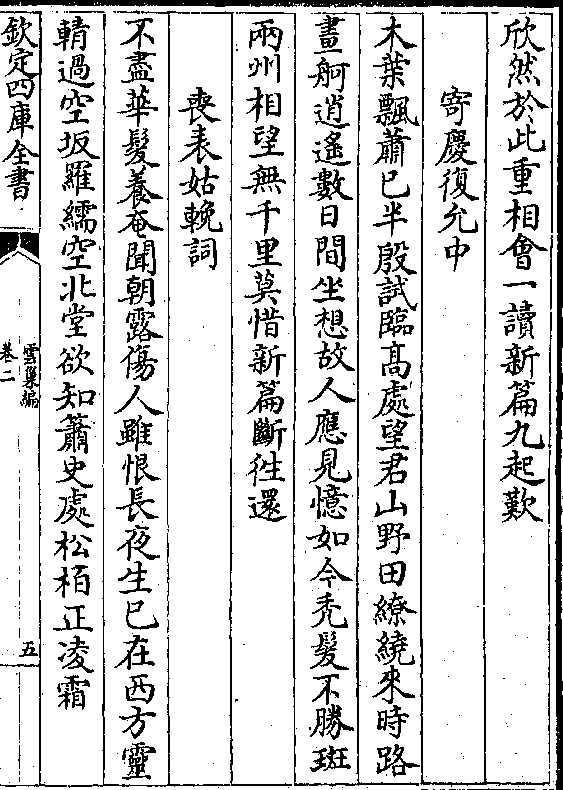 欣然於此重相會一讀新篇九起歎
寄慶復允中
木葉飄蕭已半殷試臨髙處望君山野田繚繞來時路
畫舸逍遙數日間坐想故人應見憶如今秃髪不勝斑
兩州相望無千里莫惜新篇斷徃還
喪表姑輓詞
不盡華髮養奄聞朝露傷人雖恨長夜生已在西方靈
輤過空坂羅繻空北堂欲知蕭史處松栢正凌霜
欽定四庫全書
雲巢編
卷二
五